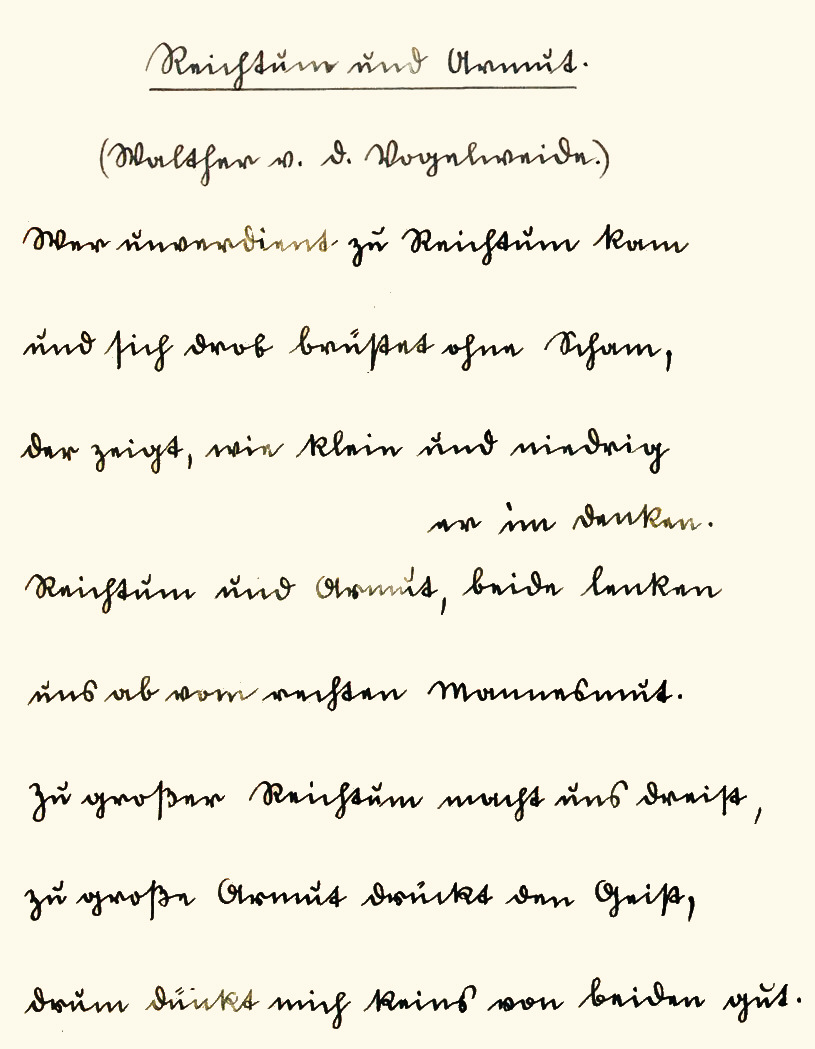 Reichtum und Armut.
(Walther v. d. Vogelweide.)
Wer unverdient zu Reichtum kam
und sich drob brüstet ohne Scham,
der zeigt, wie klein und niedrig
er im denken.
Reichtum und Armut, beide lenken
uns ab vom rechten Mannesmut.
Zu großer Reichtum macht uns dreist,
zu große Armut drückt den Geist,
drum dünkt mich keins von beiden gut.